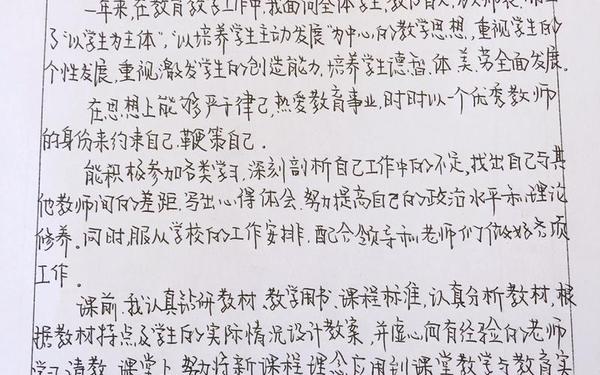 一年来,在教育教学工作中,我面向全体学生,教书育人,为人师表,
了“以学生为主体”,“以培养学生主动发展”为中心的教学思想,重视学生的
个性发展,重视激发学生的创造能力,培养学生德、智、体、美、劳全面发展。
在思想上能够严于律己,热爱教育事业,时时以一个优秀教师
的身份来约束自己,鞭策自己。
能积极参加各类学习,深刻剖析自己工作中的不足,找出自己与其
他教师间的差距,写出心得体会,努力提高自己的政治水平和理论
修养。同时,服从学校的工作安排,配合领导和老师们做好各项
工作。
课前,我认真钻研教材、教学用书、课程标准,认真分析教材,根
据教材特点及学生的实际情况设计教案,并虚心向有经验的老师
学习、请教。课堂上,努力将新课程理念应用到课堂教学与教育实